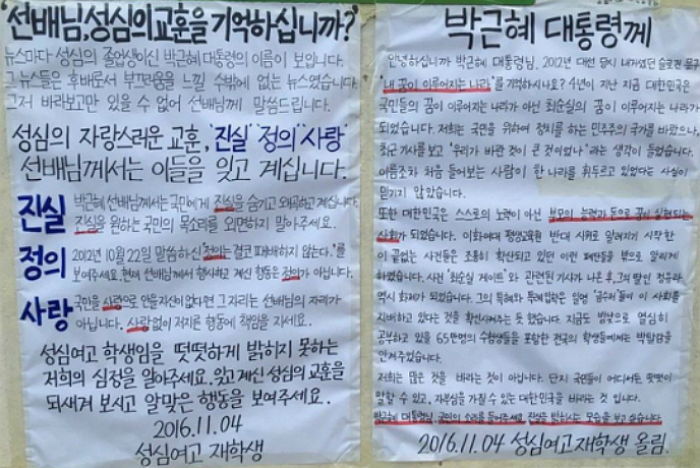 '선배님, 성심의 교훈을 기억하십니까?'
뉴스마다 성심의 졸업생이신 박근혜 대통령의 이름이 보입니다.
그 뉴스들은 후배로서 부끄러움을 느낄 수밖에 없는 뉴스였습니다.
그저 바라보고만 있을 수 없어 선배님께 말씀드립니다.
성심의 자랑스러운 교훈, '진실' '정의' '사랑'
선배님께서는 이들을 잊고 계십니다.
진실 박근혜 선배님께서는 국민에게 진실을 숨기고 왜곡하고 계십니다.
진실을 원하는 국민의 목소리를 외면하지 말아주세요.
정의 2012년 10월 22일 말씀하신 "정의는 결코 패배하지 않는다."를
보여주세요. 현재 선배님께서 행사하고 계신 행동은 정의가 아닙니다.
사랑 국민을 사랑으로 안을 자신이 없다면 그 자리는 선배님의 자리가
아닙니다. 사랑없이 저지른 행동에 책임을 지세요.
성심여고 학생임을 떳떳하게 밝히지 못하는
저희의 심정을 알아주세요. 잊고 계신 성심의 교훈을
되새겨 보시고 알맞은 행동을 보여주세요.
2016.11.04
성심여고 재학생
박근혜 대통령께
안녕하십니까 박근혜 대통령님. 2012년 대선 당시 내거셨던 슬로건 문구
"내 꿈이 이루어지는 나라"를 기억하시나요? 4년이 지난 지금 대한민국은
국민들의 꿈이 이루어지는 나라가 아닌 최순실의 꿈이 이루어지는 나라가
되었습니다. 저희는 국민을 위하여 정치를 하는 민주주의 국가를 바랐으나
최근 기사를 보고 "우리가 바란 것이 큰 것이었나"라는 생각이 들었습니다.
이름조차 처음 들어보는 사람이 한 나라를 휘두르고 있었다는 사실이
믿기지 않았습니다.
또한 대한민국은 스스로의 노력이 아닌 부모의 능력과 돈으로 꿈이 실현되는
사회가 되었습니다. 이화여대 평생교육원 반대 시위로 알려지기 시작한
이 끝없는 사건들은 조용히 확산되고 있던 이런 폐단들을 밖으로 알리게
하였습니다. 사건 '최순실 게이트'와 관련된 기사가 나온 후, 그의 딸인 정유라
역시 화제가 되었습니다. 그의 특혜와 특례입학은 일명 '금수저'들이 이 사회를
지배하고 있다는 것을 확신시켜주는 듯 했습니다. 지금도 밤낮으로 열심히
공부하고 있을 65만명의 수험생들을 포함한 전국의 학생들에게는 박탈감을
안겨주었습니다.
저희는 많은 것을 바라는 것이 아닙니다. 단지 국민들이 어디서든 떳떳이
말할 수 있고, 자부심을 가질 수 있는 대한민국을 바라는 것 입니다.
박근혜 대통령님, 국민의 소리를 들어주세요. 진실을 밝히시는 모습을 보고 싶습니다.
2016.11.04 성심여고 재학생 올림.